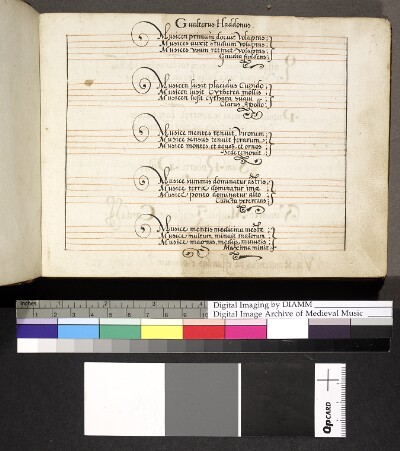 Gualterus Haddonus.
Musicen primum docuit voluptas
Musices auxit studium voluptas
Musices usum retinet voluptas
Gaudia fundens
Musicem lusit placidus Cupido
Musicen lusit Cytherea mollis
Musicen lusit cythara suavi
Clarus Apollo
Musice mentes tenuit virorum
Musice sensus tenuit ferarum
Musice montes et aquas et ornos
Sede removit
Musice summis dominatur astris
Musice terrae dominatur imae
Musice ponto dominatur alto
Cuncta
Musice mentis medicina mestae
Musice multum minuit malorum
Musice magnis medijs minutis
Maxima
inches 1 2 3 4
1 2 3 4 5 6 7 8 9 10
Digital Imaging by DIAMM
Digital Image Archive of Medieval Music
QPCARD